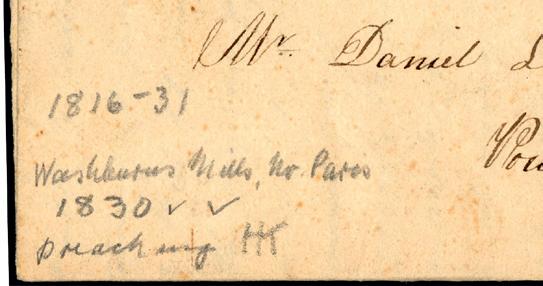 Mr. Daniel
1816-31
Washburns Mills, No. Paris
1830 ✓ ✓
preaching